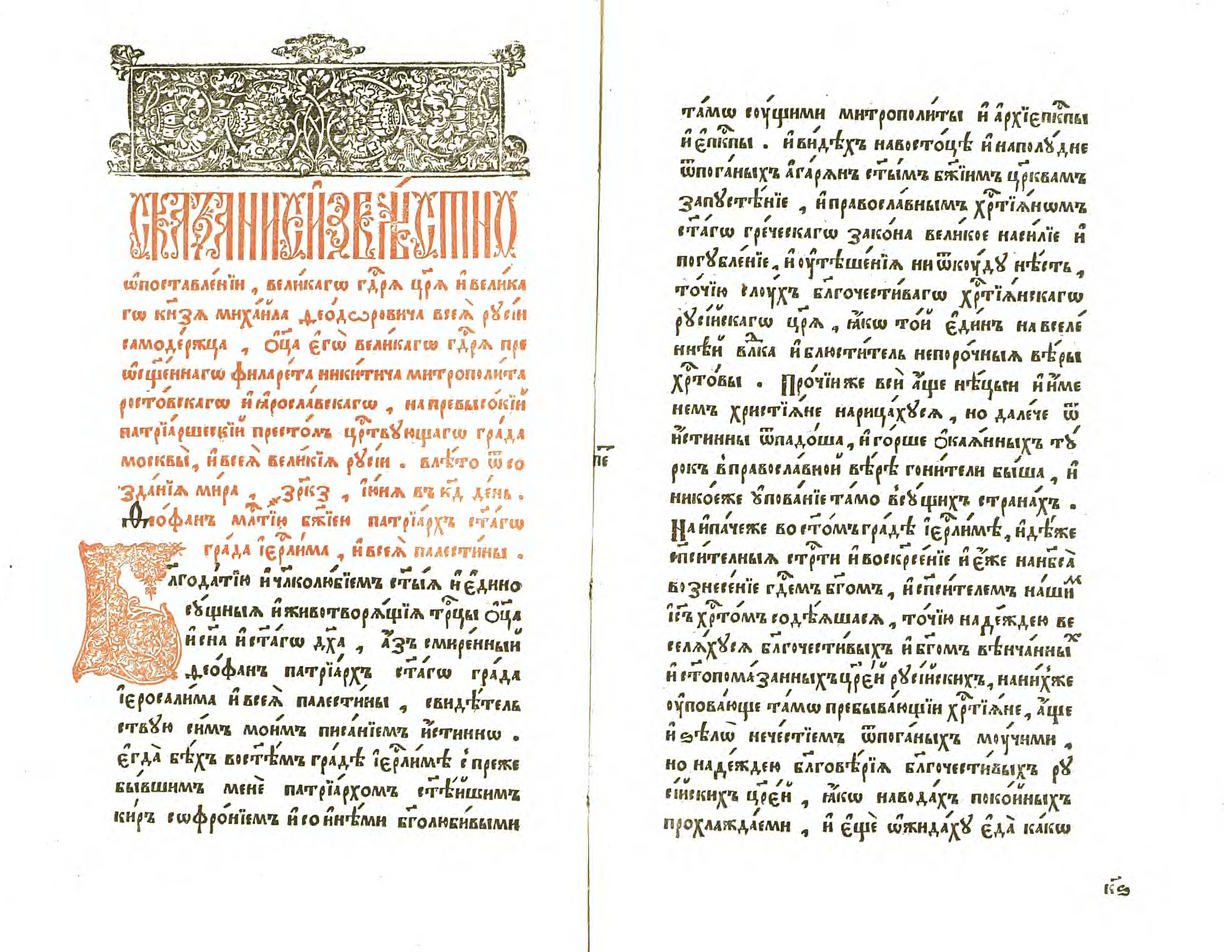 СКАЗАНИЕ И҆ЗВѢ́СТНО
ѡ҆поставле́нїи , вели́кагѡ гдⷭ҇рѧ цр҃ѧ и҆ вели́ка
гѡ кн҃зѧ миха́ила ѳео́дѡровича всеѧ̀ рꙋсі́и
самоде́ржца , ѻ҆ц҃а є҆гѡ̀ вели́кагѡ гдⷭ҇рѧ пре
ѡ҆сщ҃е́ннагѡ филаре́та ники́тича митрополи́та
росто́вскагѡ и҆ ꙗ҆росла́вскагѡ , на превысо́кїй
патрїа́ршескїй престо́лъ црⷭ҇твꙋющагѡ гра́да
москвы̀ , и҆ всеѧ̀ вели́кїѧ рꙋсі́и . влѣ́то ѿ со
зда́нїѧ ми́ра , ҂зрк҃з , і҆ю́нѧ въ к҃д де́нь .
Ѳео́фанъ млⷭ҇тїю бж҃їею патрїа́рхъ ст҃а́гѡ
гра́да і҆ерⷭ҇ли́ма , и҆ всеѧ̀ палести́ны .
Бл҃года́тїю и҆ чл҃колю́бїемъ ст҃ы́ѧ и҆ є҆дино
сꙋ́щныѧ и҆ животворѧ́щїѧ трⷪ҇цы ѻ҆ц҃а
и҆ сн҃а и҆ ст҃а́гѡ дх҃а , а҆́зъ смире́нный
ѳео́фанъ патрїа́рхъ ст҃а́гѡ гра́да
і҆еросали́ма и҆ всеѧ̀ палести́ны , свидѣ́тель
ствꙋю си́мъ мои́мъ писа́нїемъ и҆́стинно .
є҆гда̀ бѣ́хъ вост҃ѣ́мъ гра́дѣ і҆ерⷭ҇ли́мѣ с̾ пре́же
бы́вшимъ менѐ патрїа́рхомъ ст҃ѣ́йшимъ
ки́ръ сѡфро́нїемъ и҆ со и҆нѣ́ми бг҃олюби́выми
п҃е
та́мѡ соꙋ́щими митрополи́ты и҆ а҆рхїєпⷭ҇кпы
и҆ є҆пⷭ҇кпы . и҆ ви́дѣхъ навосто́цѣ и҆ наполꙋ́дне
ѿпога́ныхъ а҆гарѧ́нъ ст҃ы́мъ бж҃їимъ цр҃квамъ
запꙋстѣ́нїе , и҆ правосла́внымъ хрⷭ҇тїѧ́нѡмъ
ст҃а́гѡ гре́ческагѡ зако́на вели́кое наси́лїе и҆
погꙋбле́нїе , и҆ оу҆тѣше́нїѧ ни ѿкоꙋ́дꙋ нѣ́сть ,
то́чїю слоу́хъ бл҃гочести́вагѡ хрⷭ҇тїѧ́нскагѡ
рꙋсі́йскагѡ цр҃ѧ , ꙗ҆́кѡ то́й є҆ди́нъ навселе́
ннѣ́й влⷣка и҆ блюсти́тель непоро́чныѧ вѣ́ры
хрⷭ҇то́вы . Про́чїи же всѝ а҆́ще нѣ́цыи и҆ и҆́ме
немъ христїѧ́не нарица́хꙋсѧ , но дале́че ѿ
и҆́стинны ѿпадо́ша , и҆ го́рше ѻ҆каѧ́нныхъ тꙋ́
рокъ в̾правосла́вной вѣ́рѣ гони́тели бы́ша , и҆
никоѐже ᲂу҆пова́нїе та́мо в̾сꙋ́щихъ страна́хъ .
Наипа́чеже во ст҃о́мъ гра́дѣ і҆ерⷭ҇ли́мѣ , и҆дѣ́же
сп҃си́тельныѧ стрⷭ҇ти и҆ воскр҃се́нїе и҆ є҆́же нанб҃са̀
вознесе́нїе гдⷭ҇емъ бг҃омъ , и҆ сп҃си́телемъ на́шиⷨ
і҆с҃ъ хрⷭ҇то́мъ содѣ́ѧшасѧ , то́чїю наде́ждею ве
селѧ́хꙋсѧ бл҃гочести́выхъ и҆ бг҃омъ вѣнча́нныⷯ
и҆ ст҃опома́занныхъ цр҃е́й рꙋсі́йскихъ , нани́хже
оу҆пова́юще та́мѡ пребыва́ющїи хрⷭ҇тїѧ́не , а҆́ще
и҆ ѕѣлѡ̀ нече́стїемъ ѿпога́ныхъ моꙋ́чими ,
но наде́ждею бл҃говѣ́рїѧ бл҃гочести́выхъ рꙋ
сі́йскихъ цр҃е́й , ꙗ҆́кѡ навода́хъ поко́йныхъ
прохлажда́еми , и҆ є҆щѐ ѡ҆жида́хꙋ є҆да̀ ка́кѡ
к҃ѕ